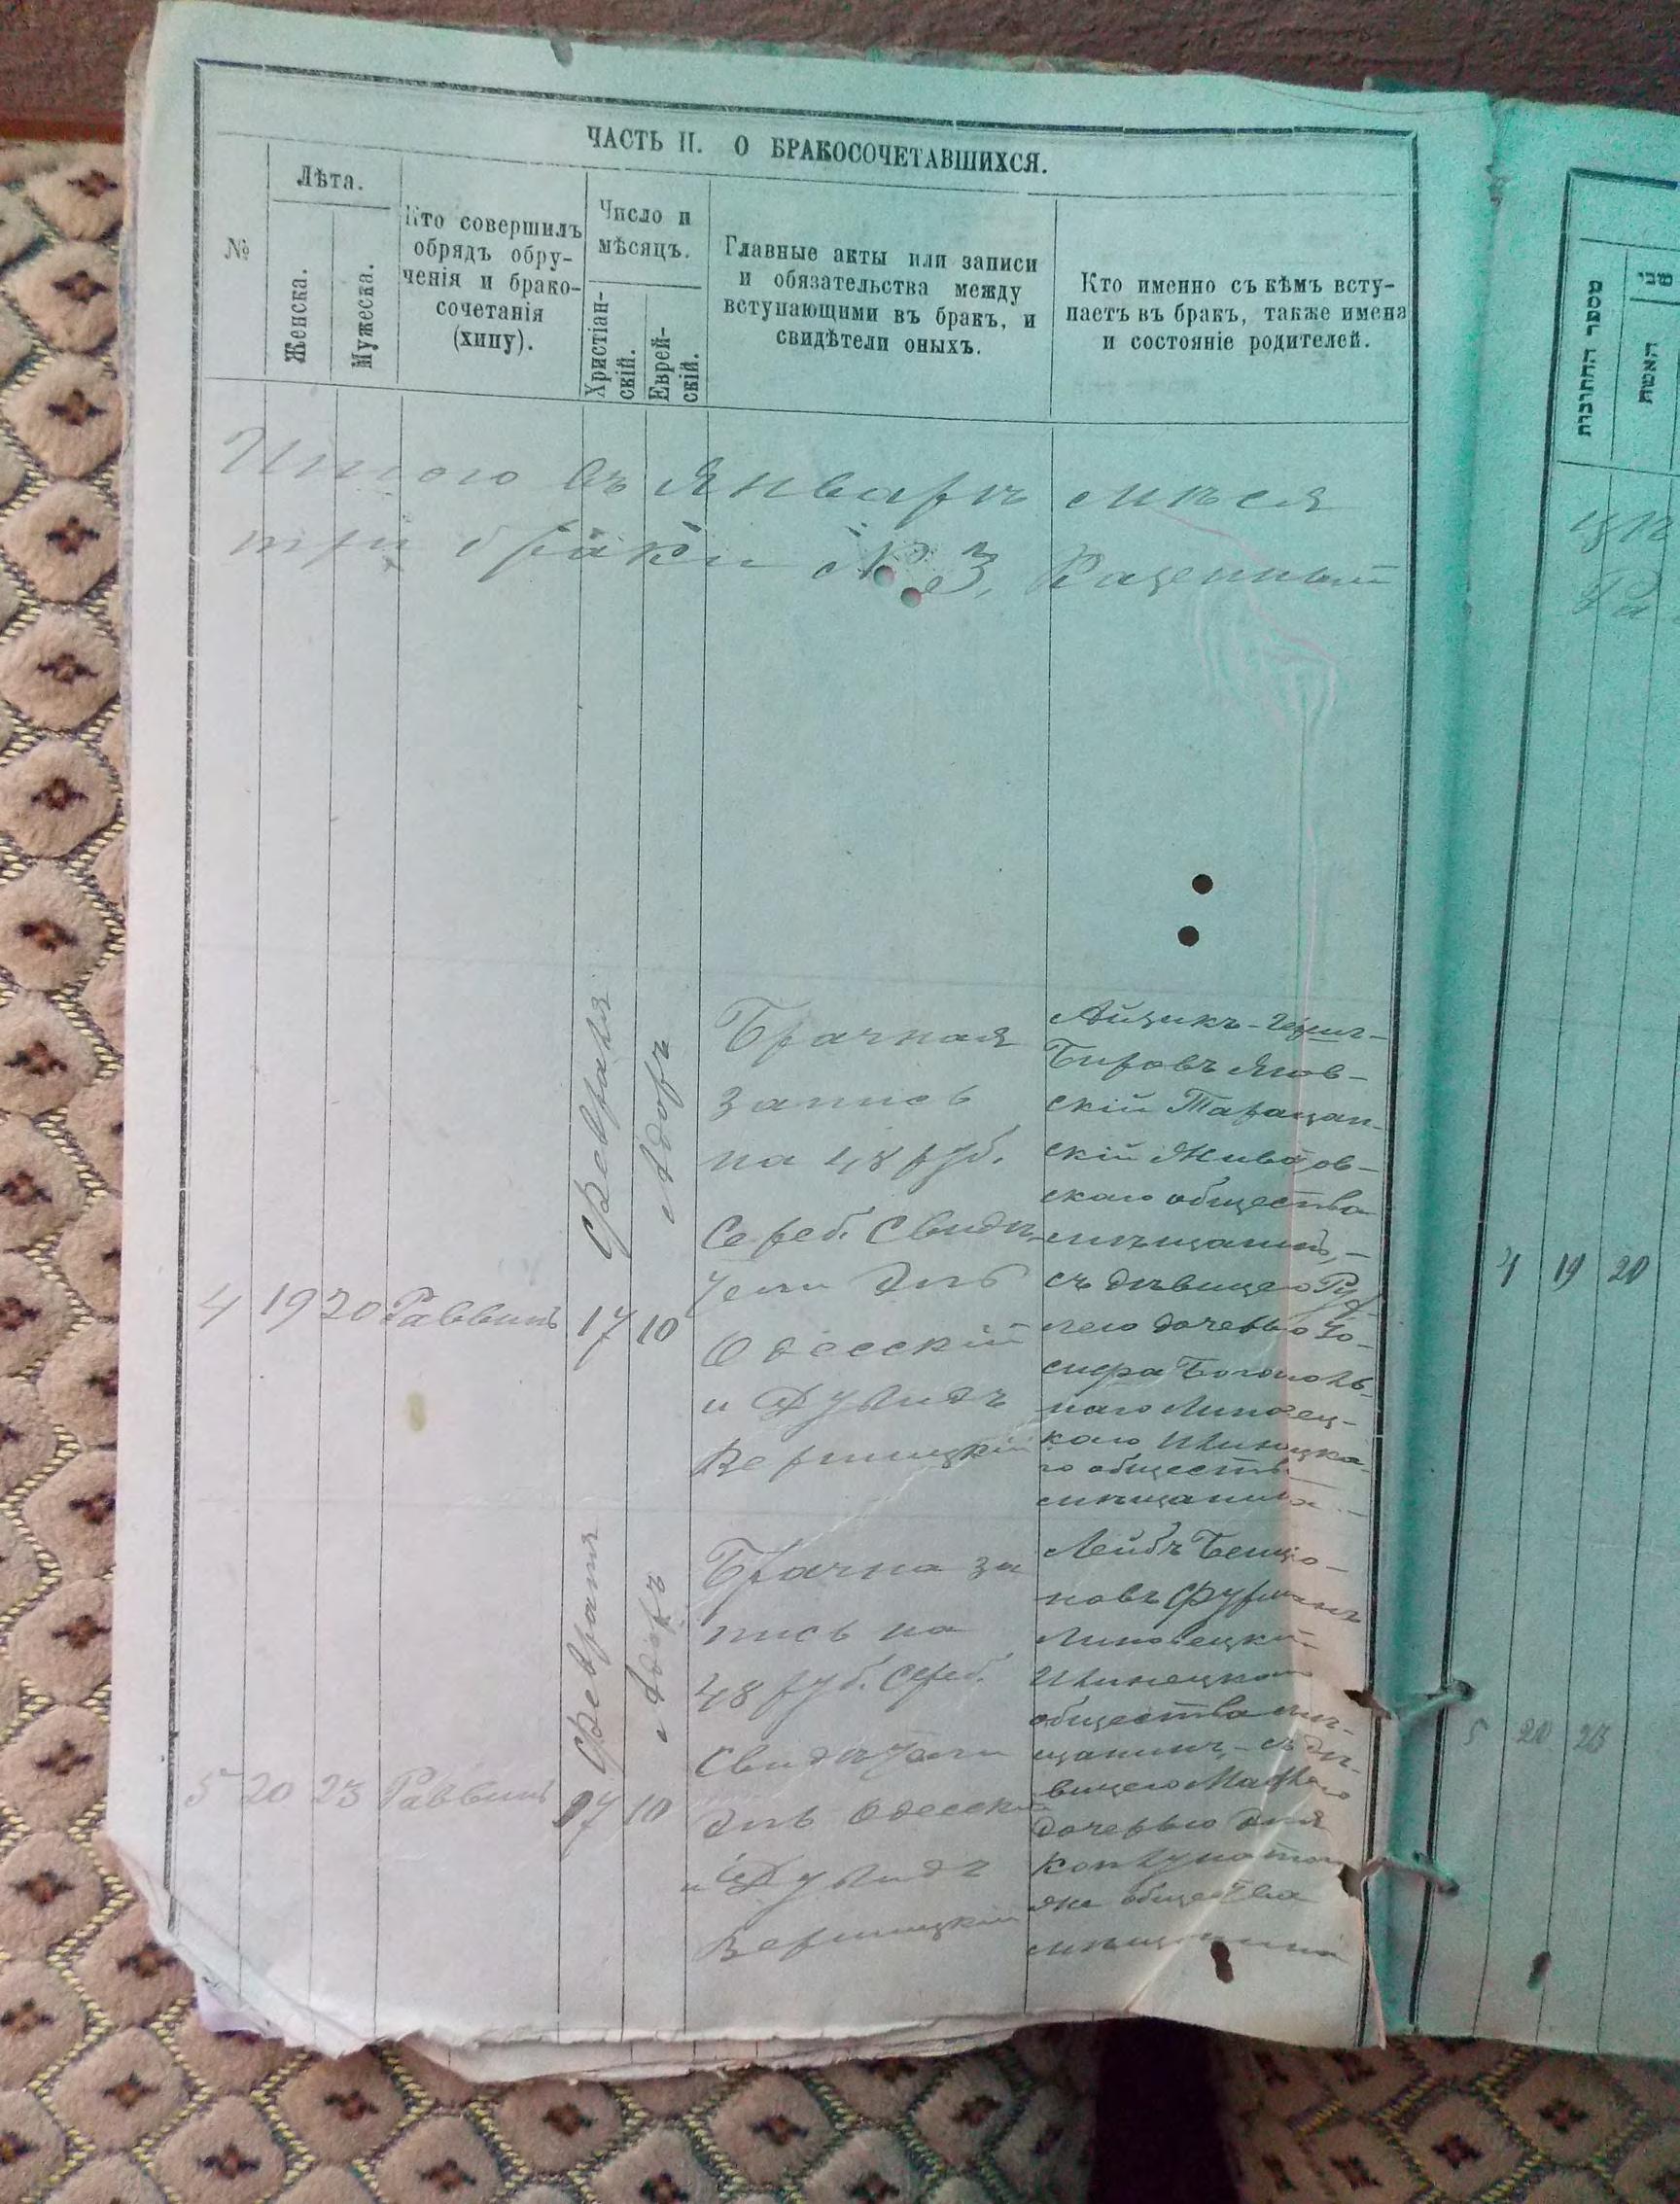 ЧАСТЬ II. О БРАКОСОЧЕТАВШИХСЯ.
№
Лѣта.
Женска.
Мужеска.
Кто совершилъ
обрядъ обру-
ченія и брако-
сочетанія
(хипу).
Число и
мѣсяцъ.
Христіан-
скій.
Еврей-
скій.
Главные акты или записи
и обязательства между
вступающими въ бракъ, и
свидѣтели оныхъ.
Кто именно съ кѣмъ всту-
паетъ въ бракъ, также имена
и состояніе родителей.
Итого въ Январѣ мѣся
три браки № 3. Казенный
4
19
20
Раввинъ
Февраля
17
Адоръ
10
Брачная
запись
на 48 руб.
Сереб. Свидѣ-
тели
Одесскій
и Дувидъ
Верницкій
Айзикъ-
Бировъ Янов-
скій Таращан-
скій Животов-
скаго общества
мѣщанинъ, -
съ дѣвицею
дочерью Іо-
сифа Богополь-
наго Липовец-
каго Илинецка-
го обществ
мѣщанина
5
20
23
Раввинъ
Февраля
17
Адоръ
10
Брачна за
пись на
48 руб. Сереб.
Свидѣтели
Одесскій
и Дувидъ
Верницкій
Лейбъ Бенцío-
новъ Фурманъ
Липовецкій
Илинецкаго
общества мѣ-
щанинъ, - съ дѣ-
вицею
дочерью
же общества
мѣщанина
מספר החתונות
שני
האשה
цѣ
Ра
4
19
20
5
20
23